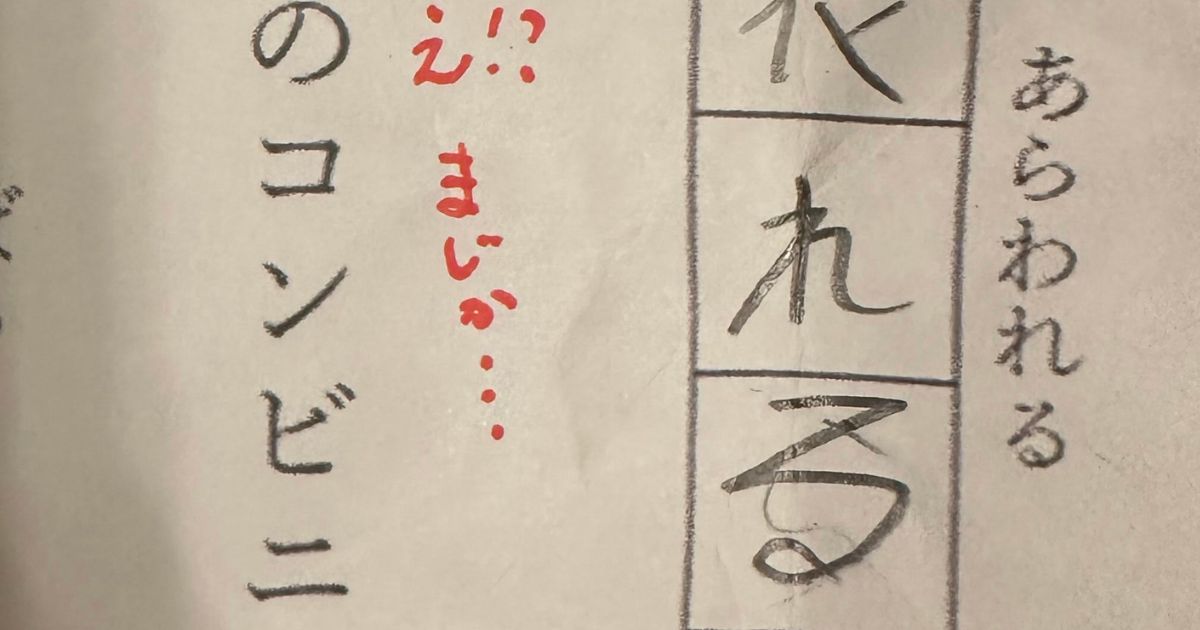 あらわれる
れる
え!?
まじか…
のコンビニ